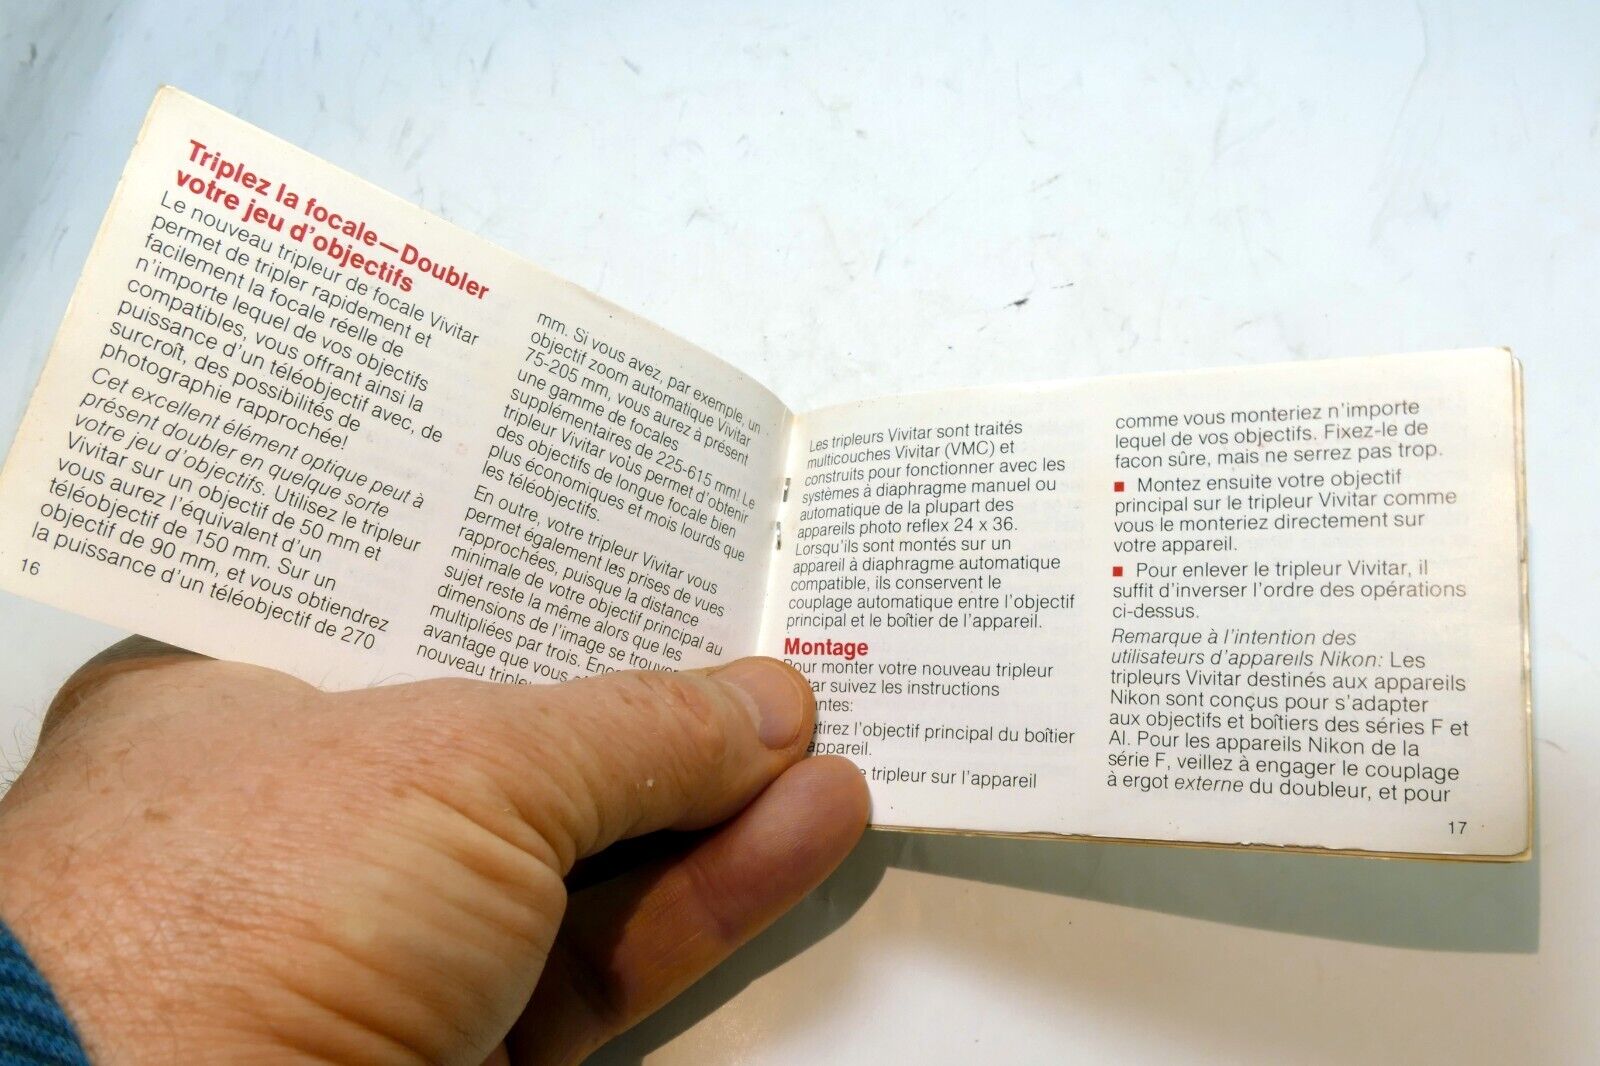 Triplez la focale—Doubler
votre jeu d'objectifs
Le nouveau tripleur de focale Vivitar
permet de tripler rapidement et
facilement la focale réelle de
n'importe lequel de vos objectifs
compatibles, vous offrant ainsi la
puissance d'un téléobjectif avec, de
surcroît, des possibilités de
photographie rapprochée!
Cet excellent élément optique peut à
présent doubler en quelque sorte
votre jeu d'objectifs. Utilisez le tripleur
Vivitar sur un objectif de 50 mm et
vous aurez l'équivalent d'un
téléobjectif de 150 mm. Sur un
objectif de 90 mm, et vous obtiendrez
la puissance d'un téléobjectif de 270
16
mm. Si vous avez, par exemple, un
objectif zoom automatique Vivitar
75-205 mm, vous aurez à présent
une gamme de focales
supplémentaires de 225-615 mm! Le
tripleur Vivitar vous permet d'obtenir
des objectifs de longue focale bien
plus économiques et mois lourds que
les téléobjectifs.
En outre, votre tripleur Vivitar vous
permet également les prises de vues
rapprochées, puisque la distance
minimale de votre objectif principal au
sujet reste la même alors que les
dimensions de l'image se trouvent
multipliées par trois.
avantage que vous
nouveau
Les tripleurs Vivitar sont traités
multicouches Vivitar (VMC) et
construits pour fonctionner avec les
systèmes à diaphragme manuel ou
automatique de la plupart des
appareils photo reflex 24 x 36.
Lorsqu'ils sont montés sur un
appareil à diaphragme automatique
compatible, ils conservent le
couplage automatique entre l'objectif
principal et le boîtier de l'appareil.
Montage
Pour monter votre nouveau tripleur
suivez les instructions
l'objectif principal du boîtier
appareil.
tripleur sur l'appareil
comme vous monteriez n'importe
lequel de vos objectifs. Fixez-le de
facon sûre, mais ne serrez pas trop.
■ Montez ensuite votre objectif
principal sur le tripleur Vivitar comme
vous le monteriez directement sur
votre appareil.
■ Pour enlever le tripleur Vivitar, il
suffit d'inverser l'ordre des opérations
ci-dessus.
Remarque à l'intention des
utilisateurs d'appareils Nikon: Les
tripleurs Vivitar destinés aux appareils
Nikon sont conçus pour s'adapter
aux objectifs et boîtiers des séries F et
AI. Pour les appareils Nikon de la
série F, veillez à engager le couplage
à ergot externe du doubleur, et pour
17